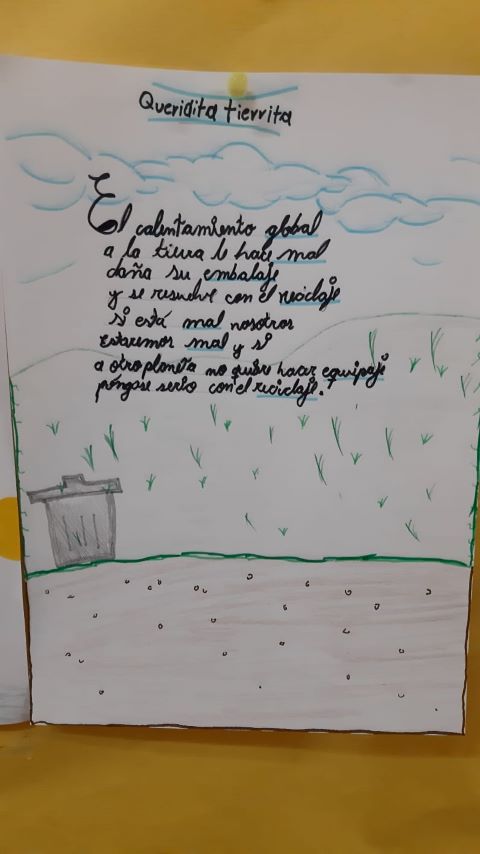 Queridita tierrita
El calentamiento global
a la tierra le hace mal
daña su embalaje
y se resuelve con el reciclaje
si está mal nosotros
estaremos mal y si
a otro planeta no quiere hacer equipaje
póngase serio con el reciclaje.